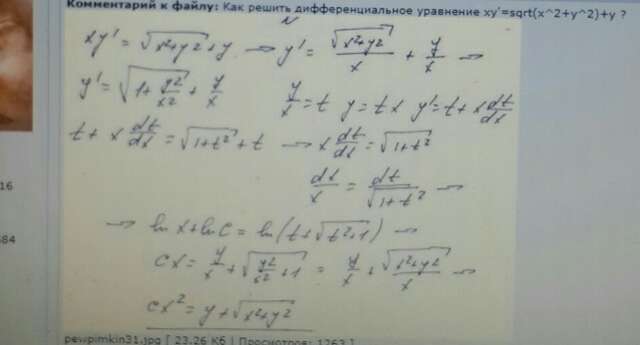 Комментарий к файлу: Как решить дифференциальное уравнение xy'=sqrt(x^2+y^2)+y ?
xy' = √(x²+y²) + y → y' = √(x²+y²)/x + y/x →
y' = √(1 + y²/x²) + y/x   y/x = t   y = tx   y' = t + x dt/dx
t + x dt/dx = √(1+t²) + t → x dt/dx = √(1+t²)
dx/x = dt/√(1+t²) →
16
→ ln x + ln c = ln(t + √(t²+1)) →
684
cx = y/x + √(y²/x² + 1) = y/x + √(x²+y²)/x →
cx² = y + √(x²+y²)
pewpimkin31.jpg [ 23.26 Кб | Просмотров: 1263 ]